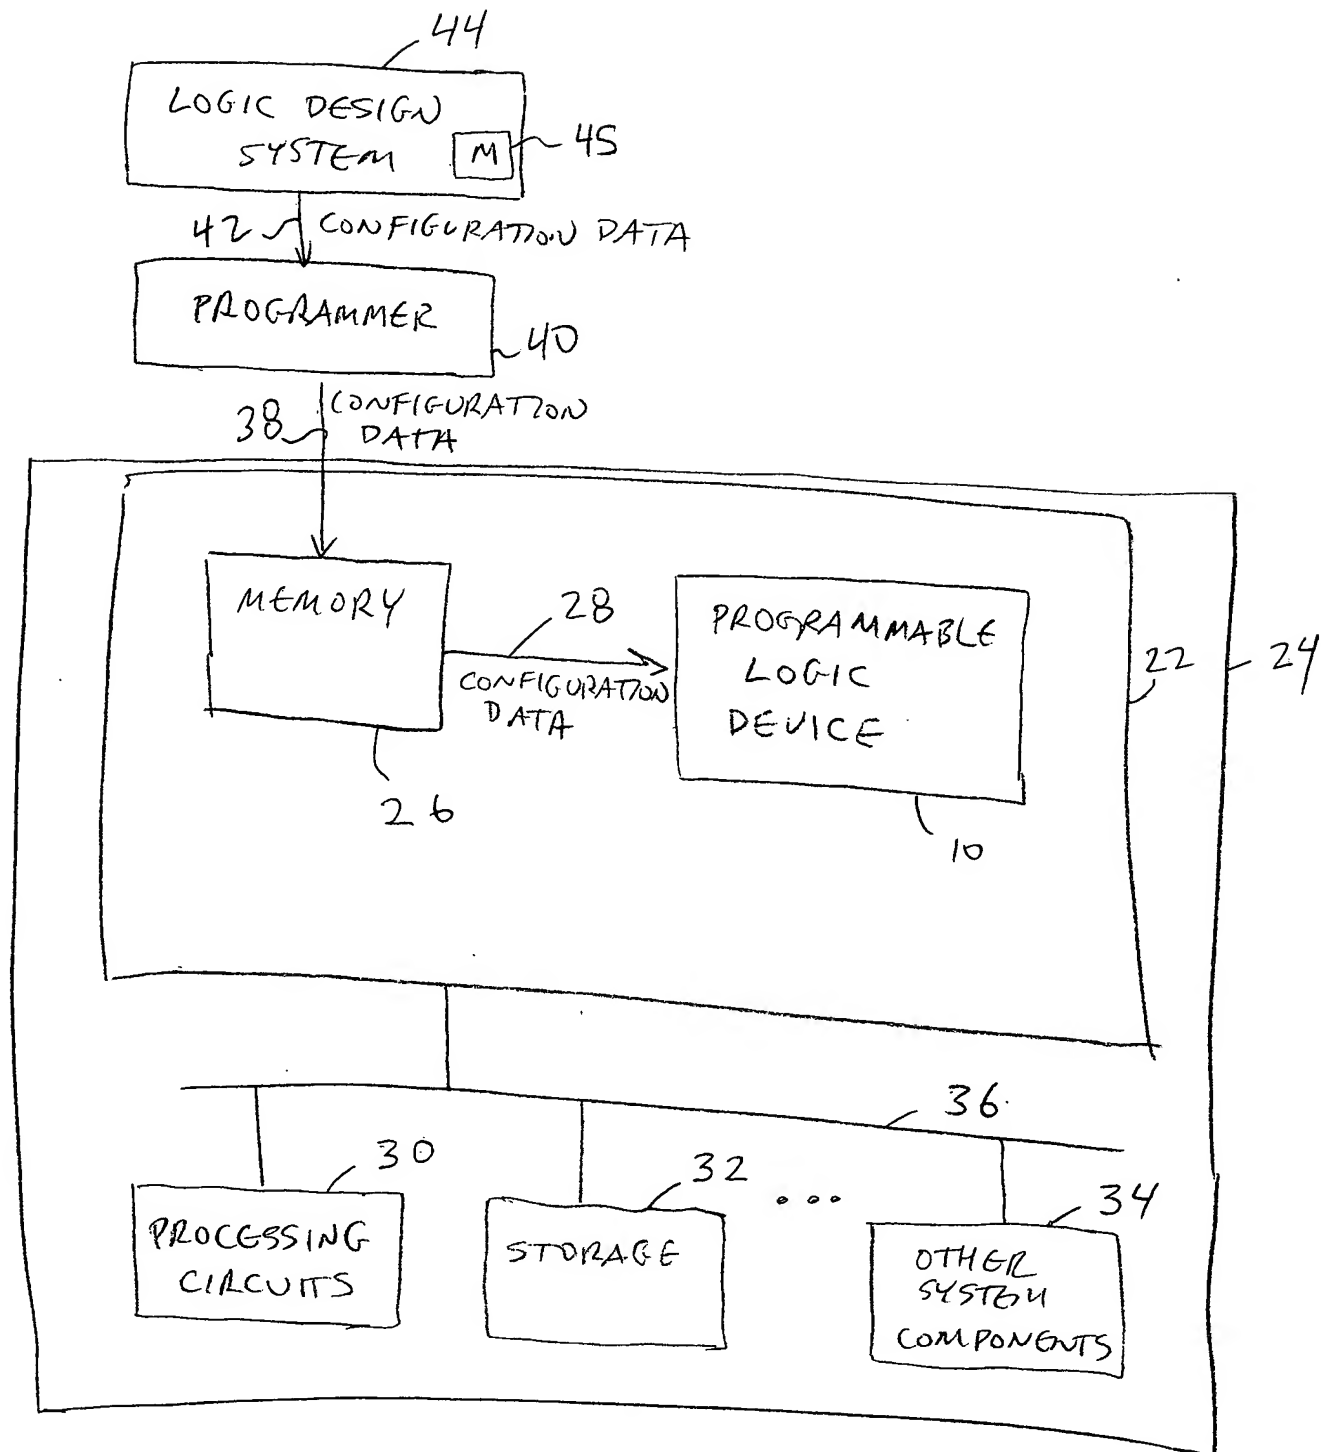 44
LOGIC DESIGN
SYSTEM
M
45
42
CONFIGURATION DATA
PROGRAMMER
40
38
CONFIGURATION
DATA
MEMORY
28
CONFIGURATION
DATA
PROGRAMMABLE
LOGIC
DEVICE
22
24
26
10
36
30
PROCESSING
CIRCUITS
32
STORAGE
...
34
OTHER
SYSTEM
COMPONENTS